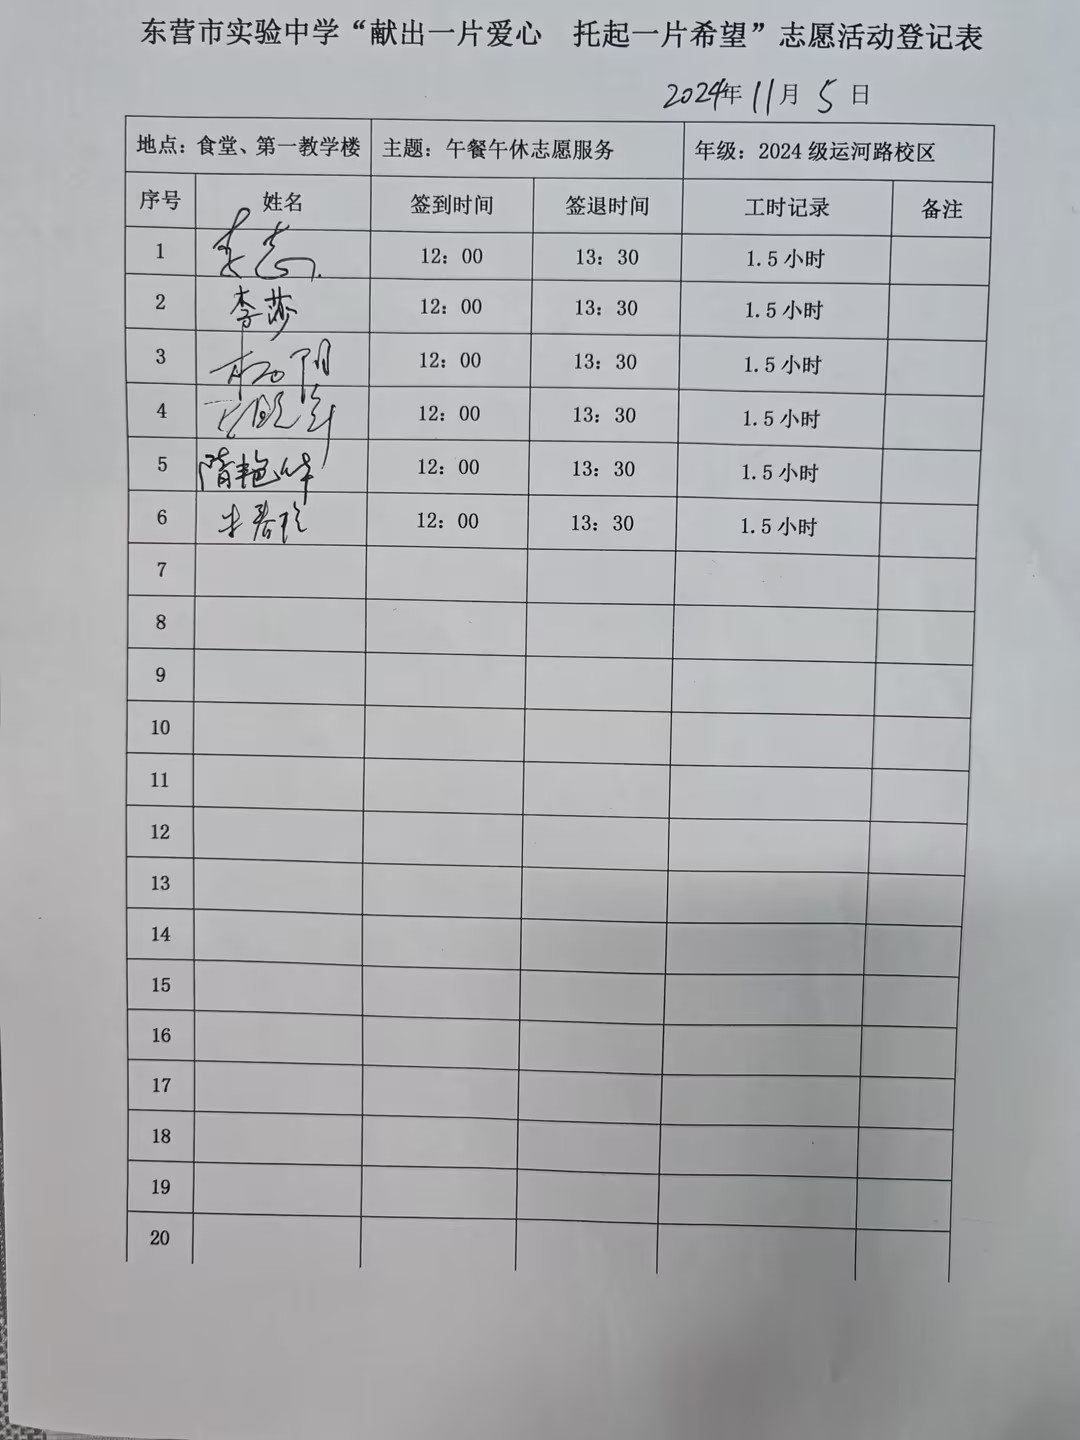 东营市实验中学“献出一片爱心 托起一片希望”志愿活动登记表
2024年11月5日
地点：食堂、第一教学楼 主题：午餐午休志愿服务 年级：2024级运河路校区
序号 姓名 签到时间 签退时间 工时记录 备注
1 12：00 13：30 1.5小时
2 李莎 12：00 13：30 1.5小时
3 杨阳 12：00 13：30 1.5小时
4 12：00 13：30 1.5小时
5 隋艳华 12：00 13：30 1.5小时
6 12：00 13：30 1.5小时
7
8
9
10
11
12
13
14
15
16
17
18
19
20